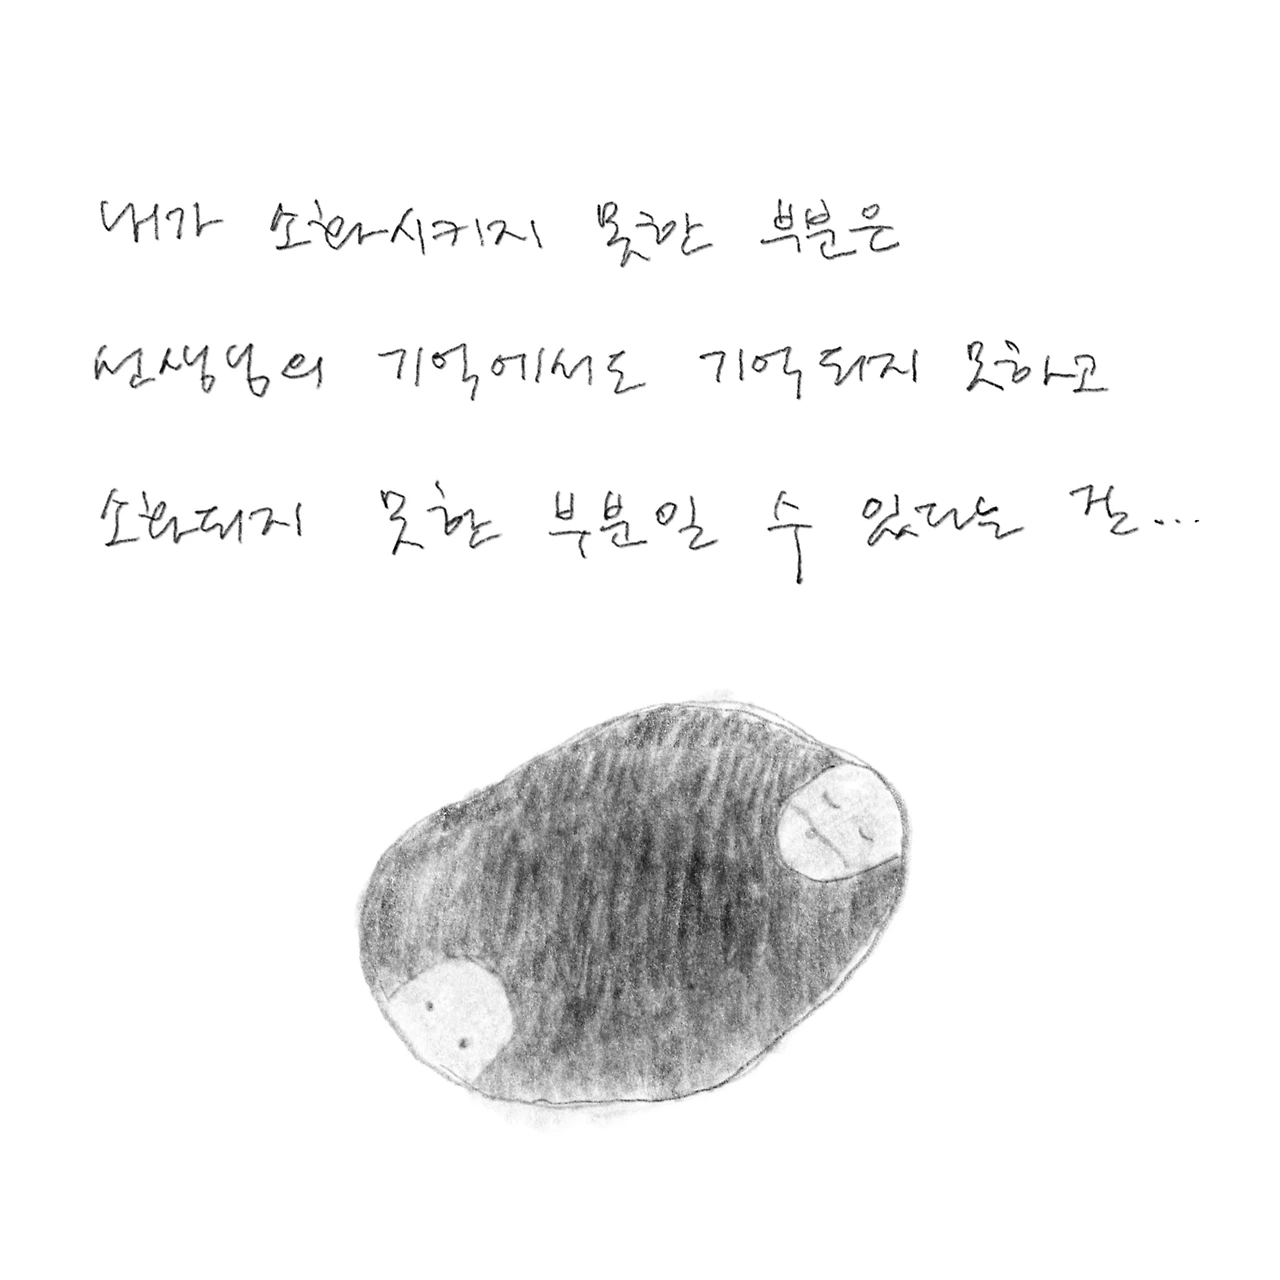 내가 소화시키지 못한 부분은
선생님의 기억에서도 기억되지 못하고
소화되지 못한 부분일 수 있다는 걸...